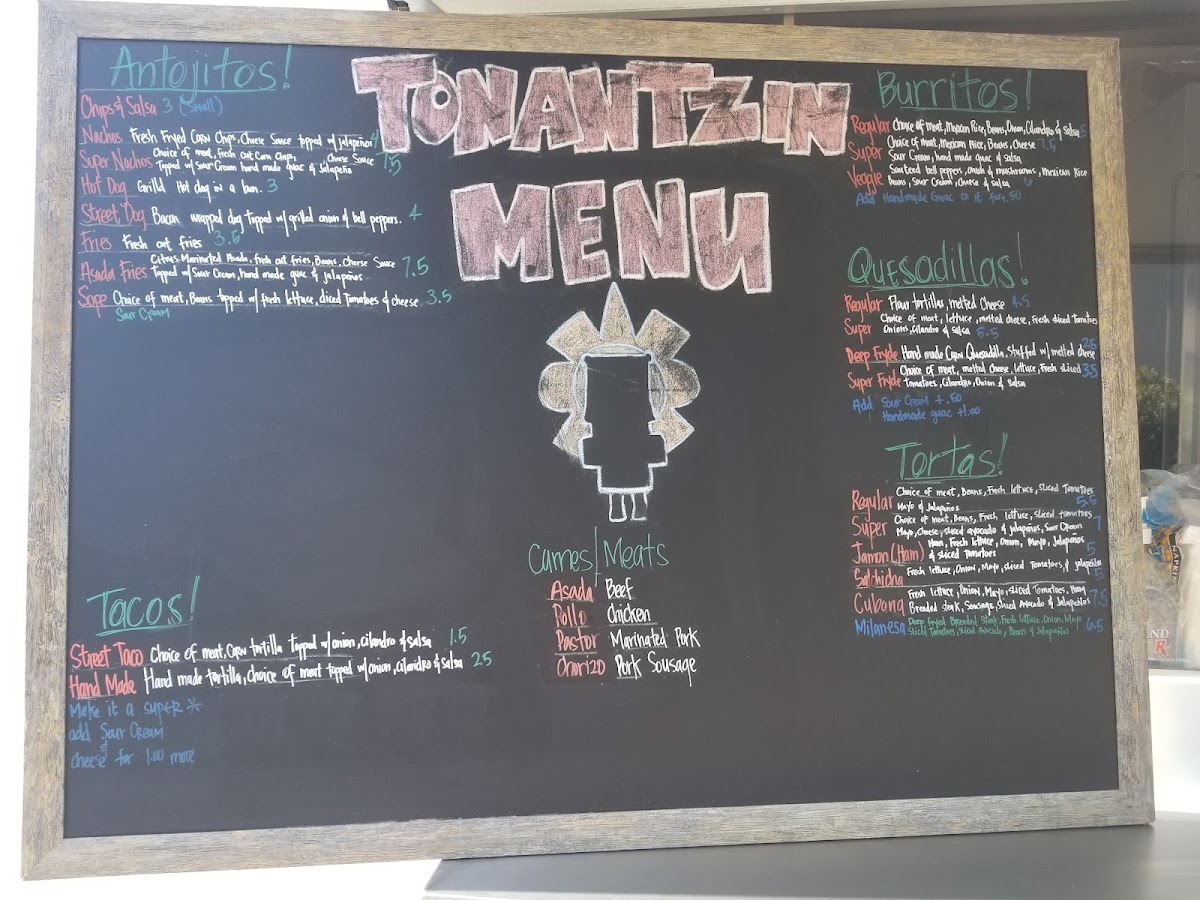 TONANTZIN
MENU
Antojitos!
Chips & Salsa 3 (Small)
Nachos Fresh Fryed Corn Chips, Cheese Sauce topped w/ jalapeños 4
Super Nachos Choice of meat, fresh cut Corn Chips, Cheese Sauce 7.5
Topped w/ Sour Cream hand made guac & Jalapeño
Hot Dog Grilld Hot dog in a bun. 3
Street Dog Bacon wrapped dog topped w/ grilled onion & bell peppers. 4
Fries Fresh cut fries 3.5
Asada Fries Citrus Marinated Asada, fresh cut fries, Beans, Cheese Sauce 7.5
Topped w/ Sour Cream, hand made guac & jalapeños
Sope Choice of meat, Beans topped w/ fresh lettuce, diced Tomatoes & cheese 3.5
Sour Cream
Tacos!
Street Taco Choice of meat, Corn tortilla topped w/ onion, cilandro & salsa 1.5
Hand Made Hand made tortilla, choice of meat topped w/ onion, cilandro & salsa 2.5
Make it a super *
add Sour Cream
cheese for 1.00 more
Carnes/Meats
Asada Beef
Pollo Chicken
Pastor Marinated Pork
Chorizo Pork Sausage
Burritos!
Regular Choice of meat, Mexican Rice, Beans, Onion, Cilandro & Salsa
Super Choice of meat, Mexican Rice, Beans, Cheese 7.5
Sour Cream, hand made guac & salsa
Veggie Sauteed bell peppers, onion & mushrooms, Mexican Rice
Beans, Sour Cream, Cheese & salsa 6
Add Handmade Guac to it for 1.50
Quesadillas!
Regular Flour tortillas, melted Cheese 4.5
Super Choice of meat, lettuce, melted cheese, Fresh sliced Tomatoes
Onions, Cilandro & Salsa 5.5
Deep Fryde Hand made Corn Quesadilla, Stuffed w/ melted cheese 2.5
Super Fryde Choice of meat, melted cheese, lettuce, Fresh sliced 3.5
Tomatoes, Cilandro, Onion & Salsa
Add Sour Cream +.50
Handmade guac +1.00
Tortas!
Regular Choice of meat, Beans, Fresh lettuce, Sliced Tomatoes
Mayo & Jalapeños 5.5
Super Choice of meat, Beans, Fresh lettuce, sliced tomatoes 7
Mayo, Cheese, sliced avocado & jalapeños, Sour Cream
Jamon (Ham) Ham, Fresh lettuce, Onion, Mayo, Jalapeños 5
& sliced Tomatoes
Salchicha Fresh lettuce, Onion, Mayo, sliced Tomatoes, & jalapeños 5
Cubana Fresh lettuce, Onion, Mayo, sliced Tomatoes, Ham 7.5
Breaded steak, Sausage, sliced Avocado & Jalapeños
Milanesa Deep Fryed Breaded Steak, Fresh lettuce, Onion, Mayo 6.5
sliced Tomatoes, sliced Avocado, Beans & Jalapeños